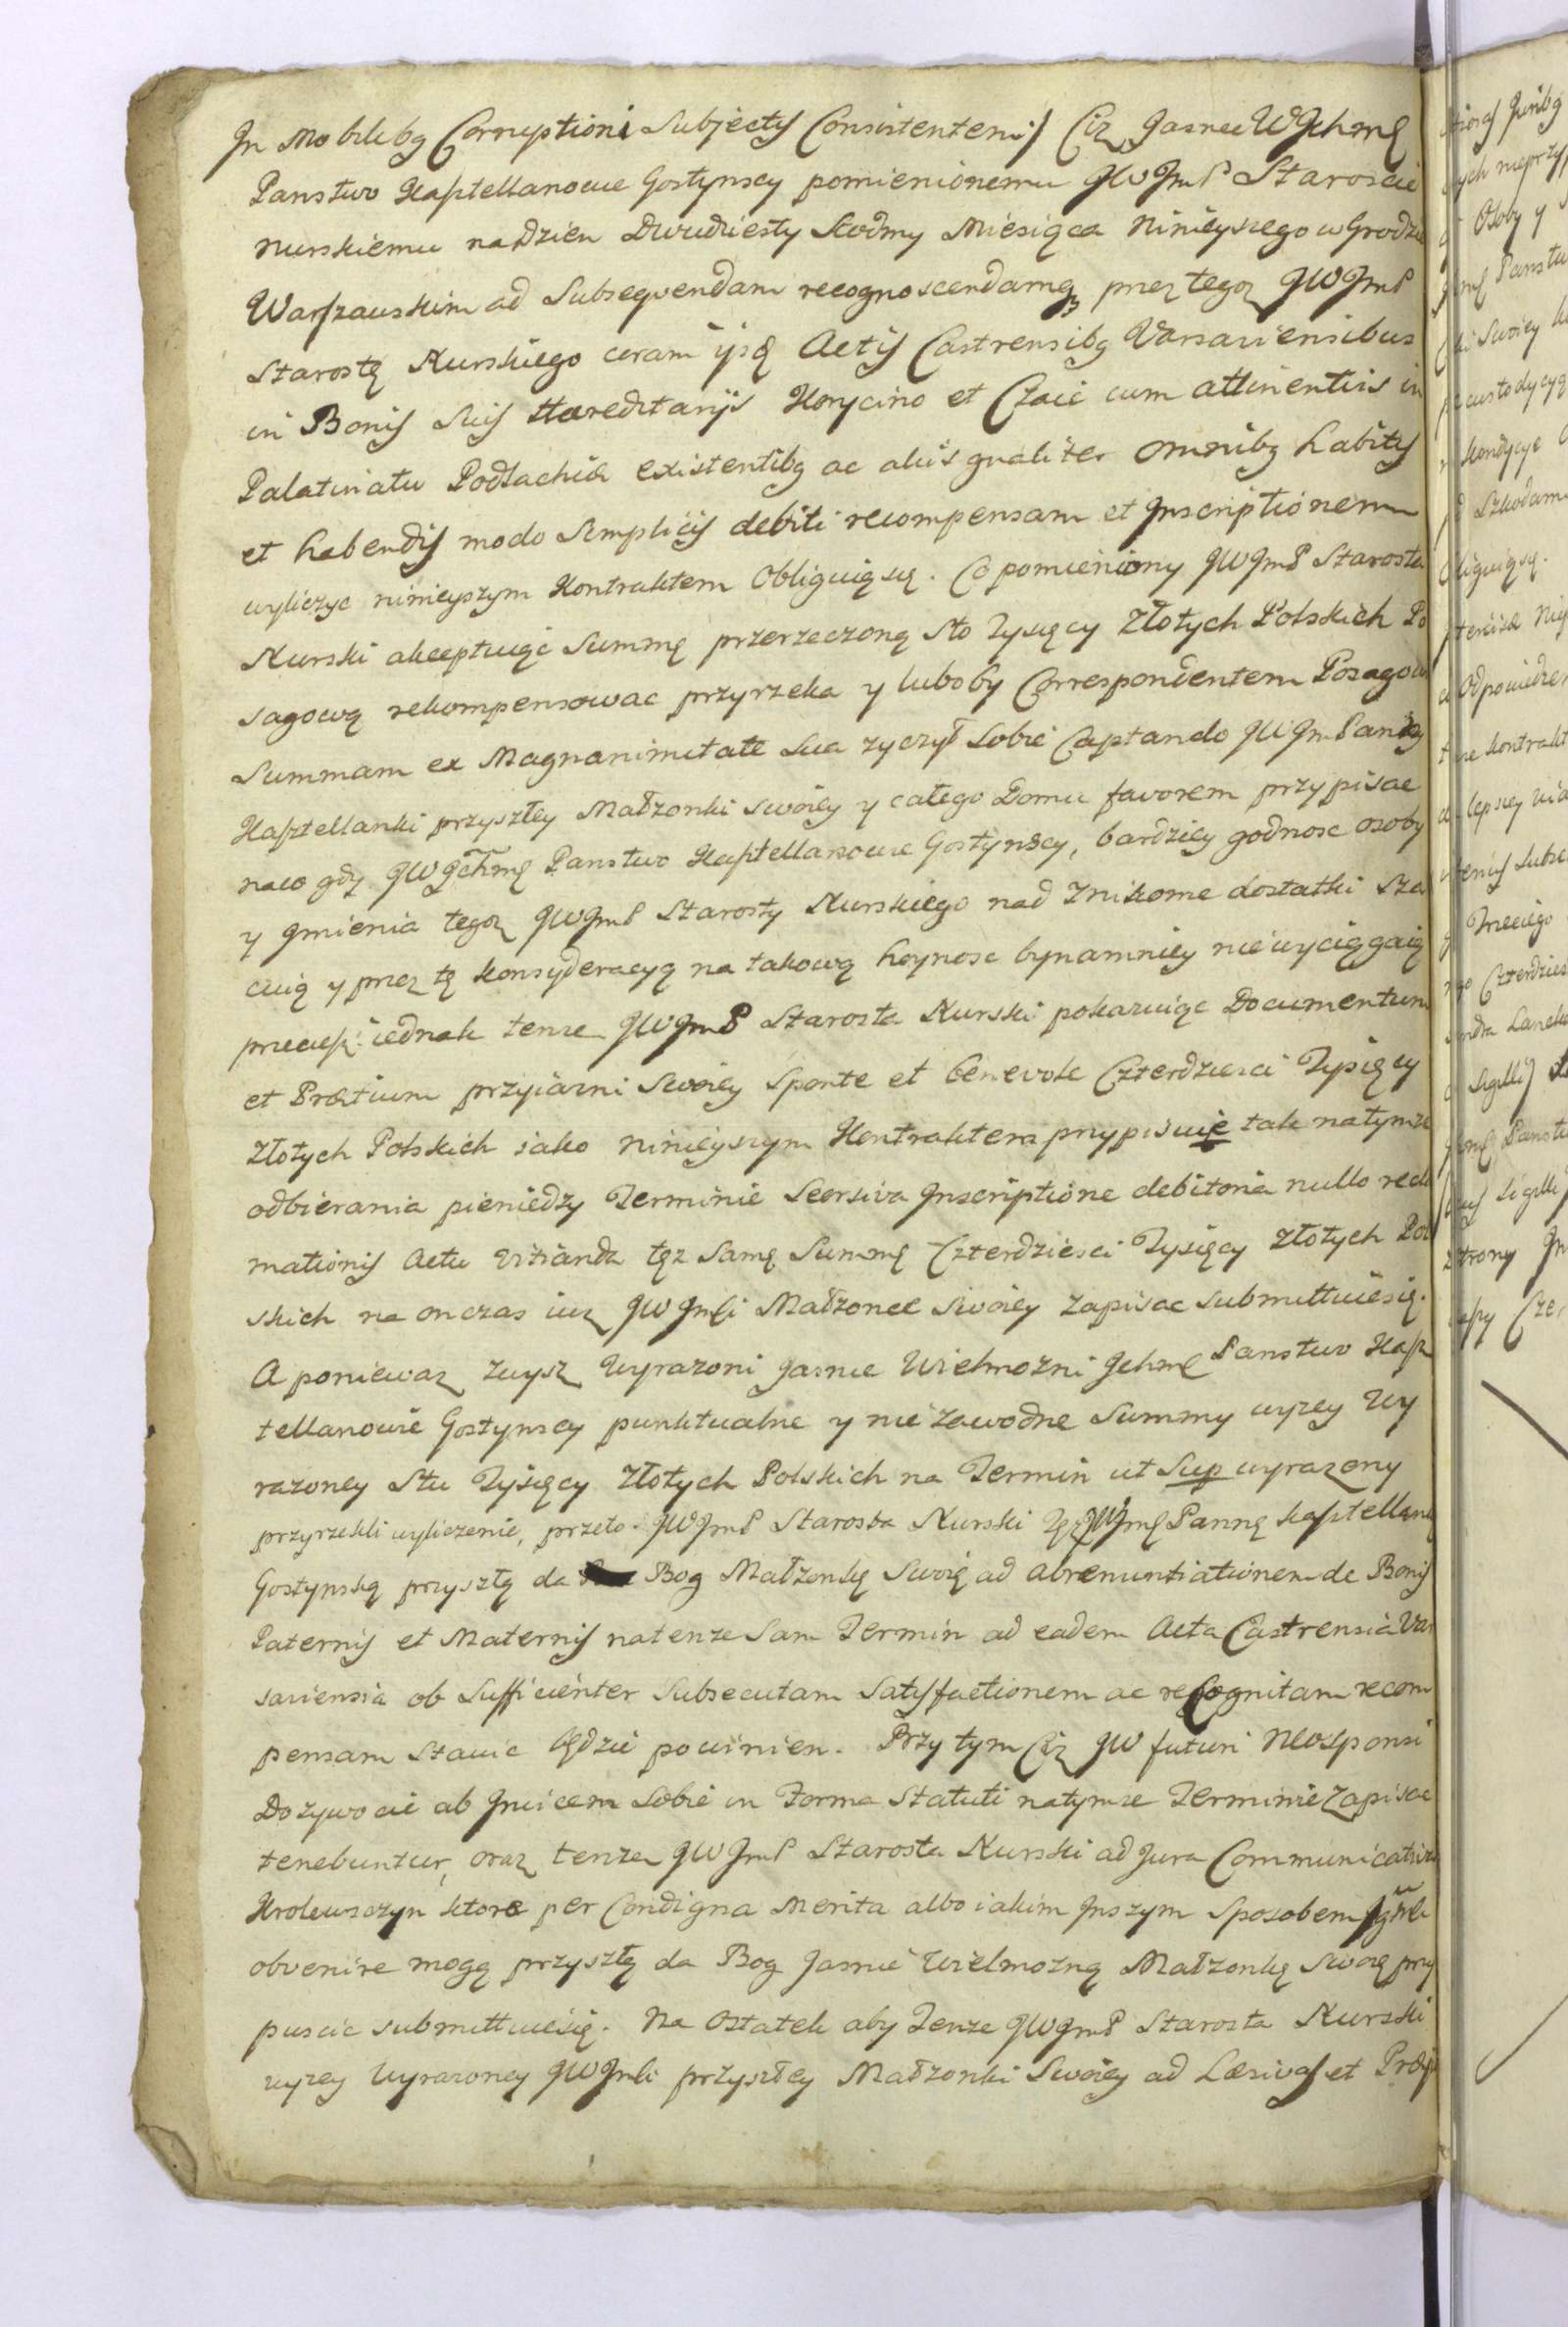 In Mobilibg Corruptioni Subjectis Consistentem) Ciz Jasnee WJchmę
Panstwo Kasztellanowie Gostynscy pomienionemu JWJmP Staroscie
Nurskiemu na dzien Dwudziesty Siodmy Miesiąca Ninieyszego w Grodzie
Warszawskim ad Subseqvendam recognoscendamq przez tegoz JWJmP
Starostę Nurskiego coram ijsdę Actis Castrensibg Varsaviensibus
in Bonis Suis Hæreditarijs Korycino et Czaie cum attinentiis in
Palatinatu Podlachiæ existentibg ac aliis qualiter omnibg habitis
et habendis modo Simplicis debiti recompensam et Inscriptionem
wyliczyc ninieyszym Kontraktem Obliguią się. Co pomieniony JWJmP Starosta
Nurski akceptuiąc Summę przerzeczoną Sto Tysięcy Złotych Polskich Po
sagową rekompensowac przyrzeka y luboby Correspondentem Posagow
Summam ex Magnanimitate Sua zyczył Sobie Captando JWJmPanny
Kasztellanki przyszłey Małzonki Swoiey y całego Domu favorem przypisac
naco gdy JWJchmę Panstwo Kasztellanowie Gostynscy, bardziey godnosc osoby
y Jmienia tegoz JWJmP Starosty Nurskiego nad Znikome dostatki Sza
cuią y przez tę konsyderacyą na takową hoynosc bynamniey nie wyciągaią
przecięsz iednak tenze JWJmP Starosta Nurski pokazuiąc Documentum
et Prætium przyiazni Swoiey Sponte et benevole Czterdziesci Tysięcy
Złotych Polskich iako ninieyszym Kontraktem przypisuie tak natymze
odbierania pieniędzy Terminie Seorsiva Inscriptione debitoria nullo recla
mationis Actu vitianda tęz Samę Summę Czterdziesci Tysięcy Złotych Pol
skich na onczas iuz JWJmCi Małzonce Swoiey Zapisac submittuiesię.
A poniewaz Zwysz Wyrazoni Jasnie Wielmozni Jchmę Panstwo Kasz
tellanowie Gostynscy punktualne y nie zawodne Summy wyzey Wy
razoney Stu Tysięcy Złotych Polskich na Termin ut Sup wyrazony
przyrzekli wyliczenie, przeto JWJmP Starosta Nurski Tęz JWJmę Pannę kasztellankę
Gostynską przyszłą da Bog Małzonkę Swoię ad abrenuntiationem de Bonis
Paternis et Maternis natenze Sam Termin ad eadem Acta Castrensia Var
saviensia ob Sufficienter Subsecutam Satysfactionem ac recognitam recom
pensam stawic będzie powinien. Przy tym Ciz JW futuri Neosponsi
Dozywocie ab Invicem Sobie in Forma Statuti natymze Terminie Zapisac
tenebuntur, oraz tenze JWJmP Starosta Nurski ad Jura Communicativa
Krolewszczyn ktore per Condigna Merita albo iakim Inszym Sposobem
obvenire mogą przyszłą da Bog Jasnie Wielmozną Małzonkę Swoię przy
puscic submittuiesię. Na Ostatek aby Tenze JWJmP Starosta Nurski
wyzey Wyrazoney JWJmCi przyszłey Małzonki Swoiey ad Læsivas et Præj